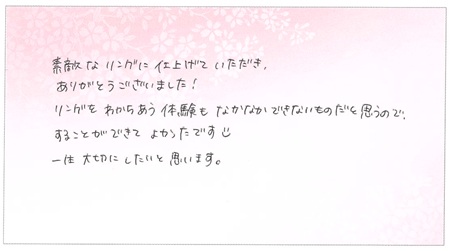 素敵なリングに仕上げていただき、
ありがとうございました！
リングをわかちあう体験もなかなかできないものだと思うので、
することができてよかったです☺
一生大切にしたいと思います。